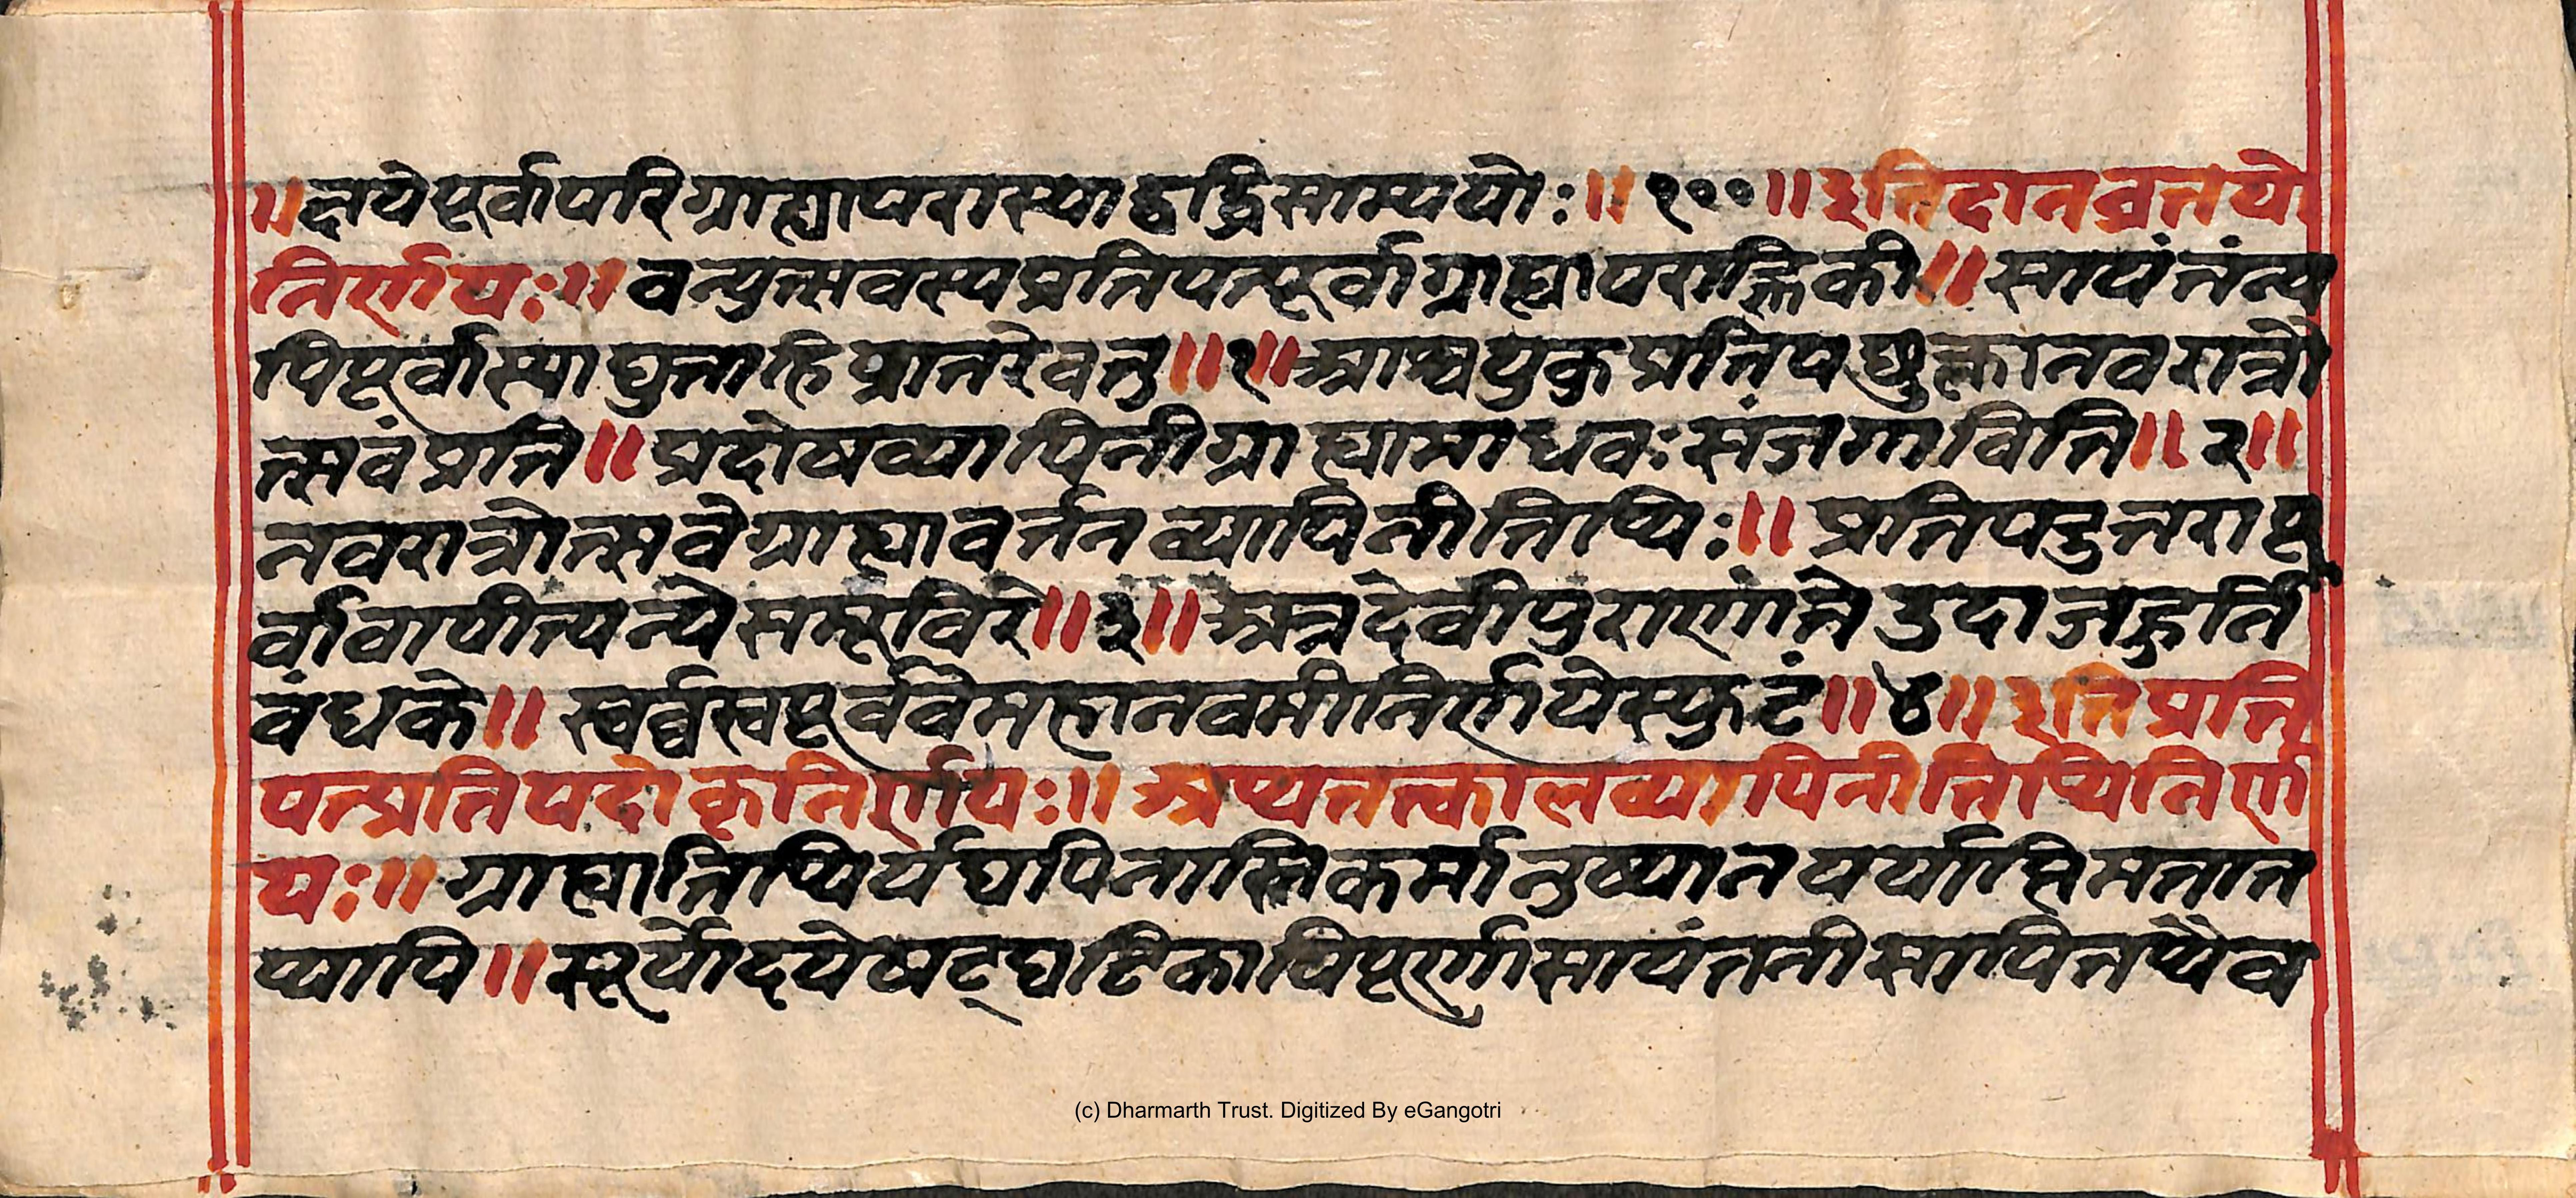 ॥त्नयेपूर्वापरिग्राह्यापरास्याद्वृद्धिसाम्ययोः॥१००॥इतिदानव्रतयो
निर्णयः॥वन्युत्सवस्यप्रतिपत्पूर्वाग्राह्यापराह्निकी॥सायंतंन्य
पिपूर्वास्याद्युताहिप्रातरेवतु॥१॥आश्वयुकुप्रतिपछुक्लानवरात्रो
त्सवंप्रति॥प्रदोषव्यापिनीग्राह्यामाधवःसंजगाविति॥२॥
नवरात्रोत्सवेग्राह्यावर्त्ततव्यापिनीतिथिः॥प्रतिपदुत्तरापू
र्वावापीत्यन्येसमूविरे॥३॥अत्रदेवीपुराणांतेउदाजह्रुर्नि
वंधके॥स्वर्वस्वपूर्ववैमहानवमीनिर्णयेस्फुटं॥४॥इतिप्रति
पत्प्रतिपदोकृनिर्णयः॥अथतत्कालव्यापिनीतिथिनिर्ण
यः॥ग्राह्यातिथिर्यद्यपिनास्तिकर्मानुष्ठानपर्याप्तिमतात
थापि॥सूर्योदयेषट्घटिकापिपूर्णासायंतनीसापितथैव
(c) Dharmarth Trust. Digitized By eGangotri